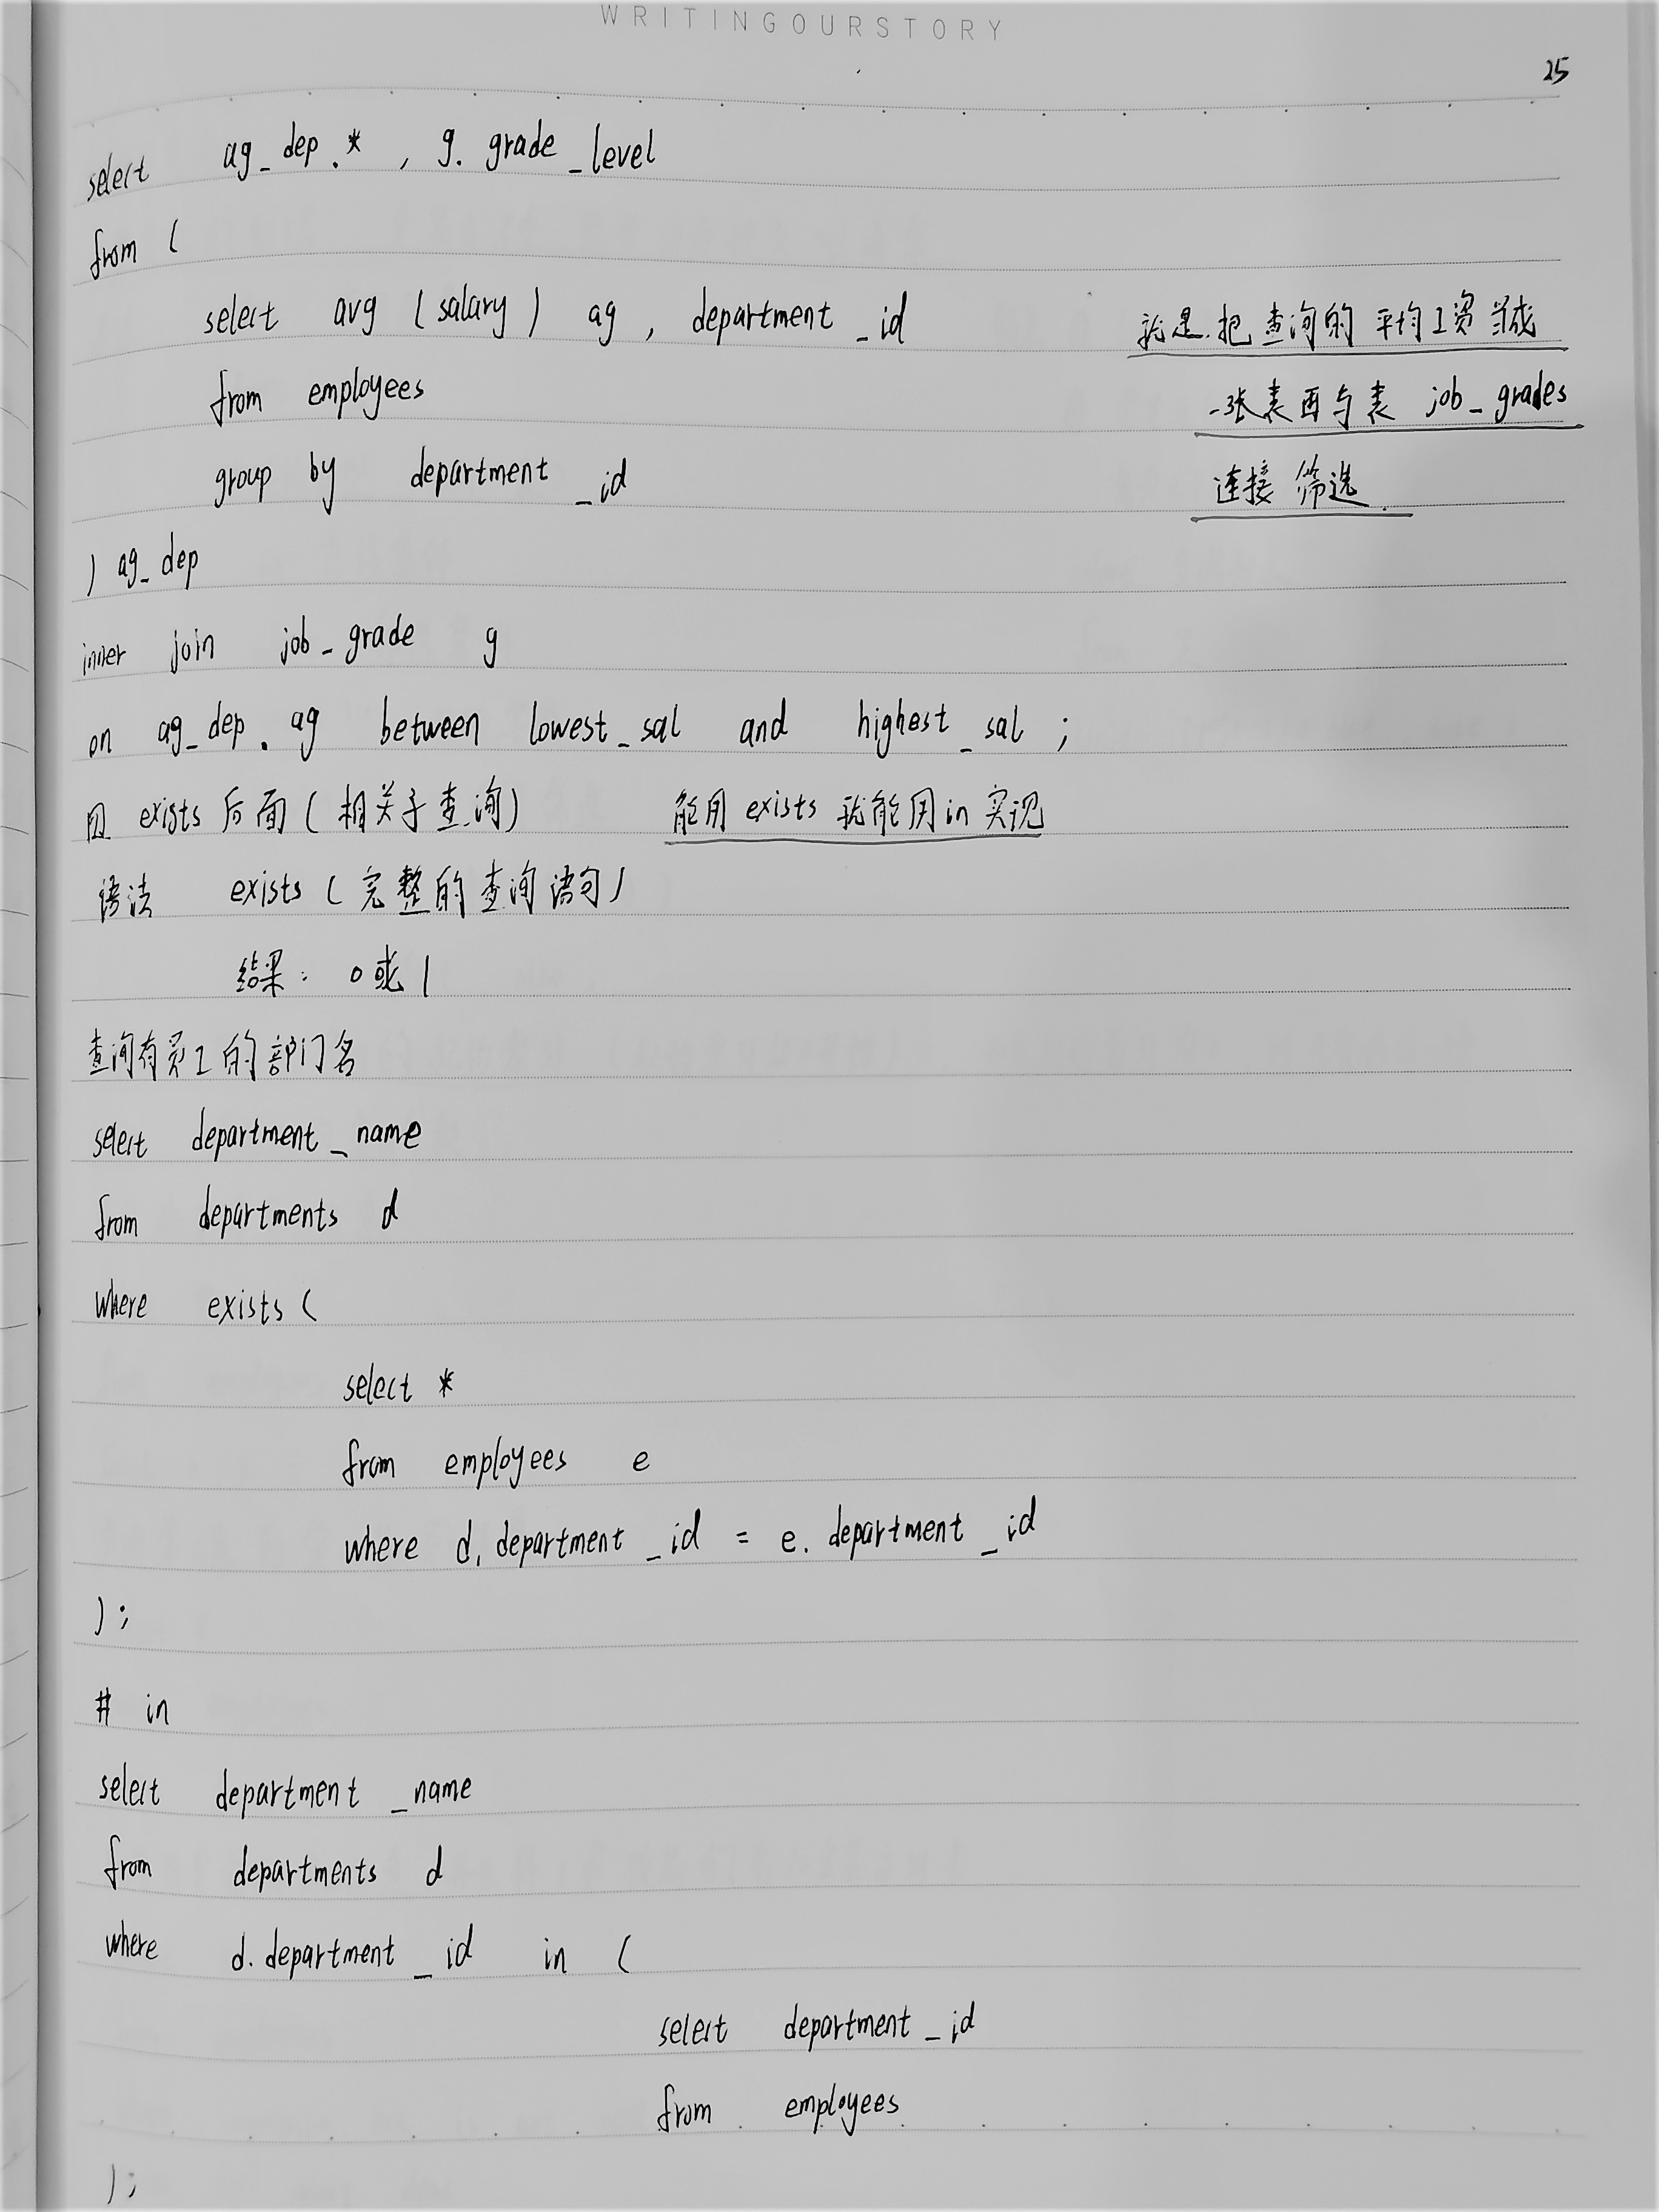 WRITINGOURSTORY
25
select ag_dep.* , g. grade_level
from (
select avg (salary) ag , department_id 就是把查询的平均工资当成
from employees 一张表再与表 job_grades
group by department_id 连接筛选.
) ag_dep
inner join job_grade g
on ag_dep.ag between lowest_sal and highest_sal ;
四 exists后面(相关子查询) 能用exists就能用in实现
语法 exists (完整的查询语句)
结果: 0或1
查询有员工的部门名
select department_name
from departments d
where exists (
select *
from employees e
where d.department_id = e.department_id
);
# in
select department_name
from departments d
where d.department_id in (
select department_id
from employees
);